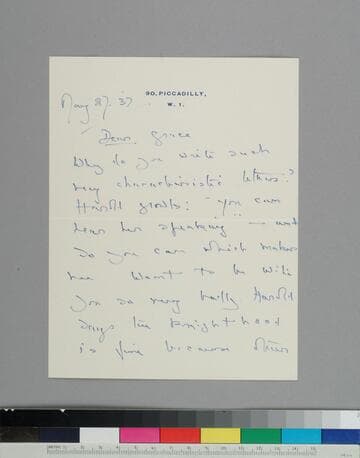 90, PICCADILLY,
W. 1.
May 27. 37
Dear Grace
Why do you write such
very characteristic letters?
Harold growls: "you can
hear her speaking" — and
so you can which makes
me want to be with
you so very badly Harold
says the Knighthood
is fine because